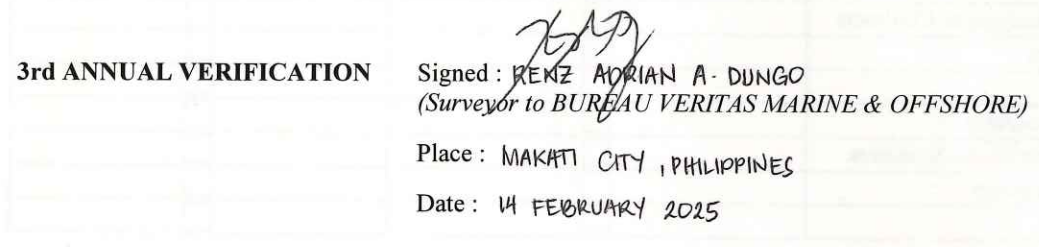 3rd ANNUAL VERIFICATION Signed : RENZ ADRIAN A. DUNGO
(Surveyor to BUREAU VERITAS MARINE & OFFSHORE)
Place : MAKATI CITY, PHILIPPINES
Date : 14 FEBRUARY 2025